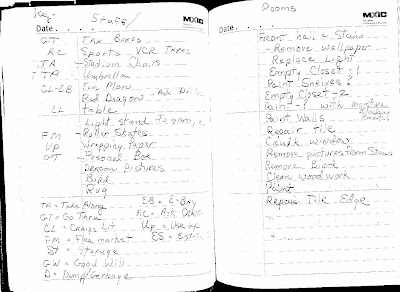 Key
Stuff
MXIC
Date
GT Tax Boxes
AC Sports VCR Tapes
TA - Stadium Chairs
TA Umbrella
CL-EB Tin Man
Red Dragon - Ask
CL table
Light stand
FM - Roller Skates
UP Wrapping Paper
GT - Personal Box
Pictures
Bird
Rug
TA = Take Along EB = E-Bay
GT = Go Thru AC = Ask
CL = Craigs List UP = Use up
FM = Flea market ES =
St = Storage
GW = Good Will
D = Dump/Garbage
Rooms
MXIC
Date
Front hall & Stairs
- Remove wallpaper
Replace Light
Empty Closet - 1
Paint Shelves
Empty Closet - 2
Paint - 1 with
Paint Walls
Repair tile
Caulk window
Remove pictures from Stairs
Remove Blind
Clean woodwork
Paint
Repair Tile Edge